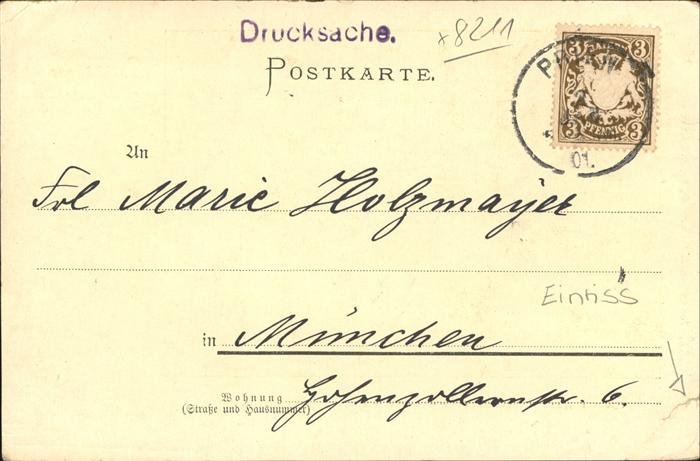 Drucksache.
x8211
POSTKARTE.
3 3
BAYERN
3 PFENNIG 3
01.
An
Frl Marie Holzmayer
Einriss
in München
Wohnung
(Straße und Hausnummer)
Hohenzollernstr. 6.